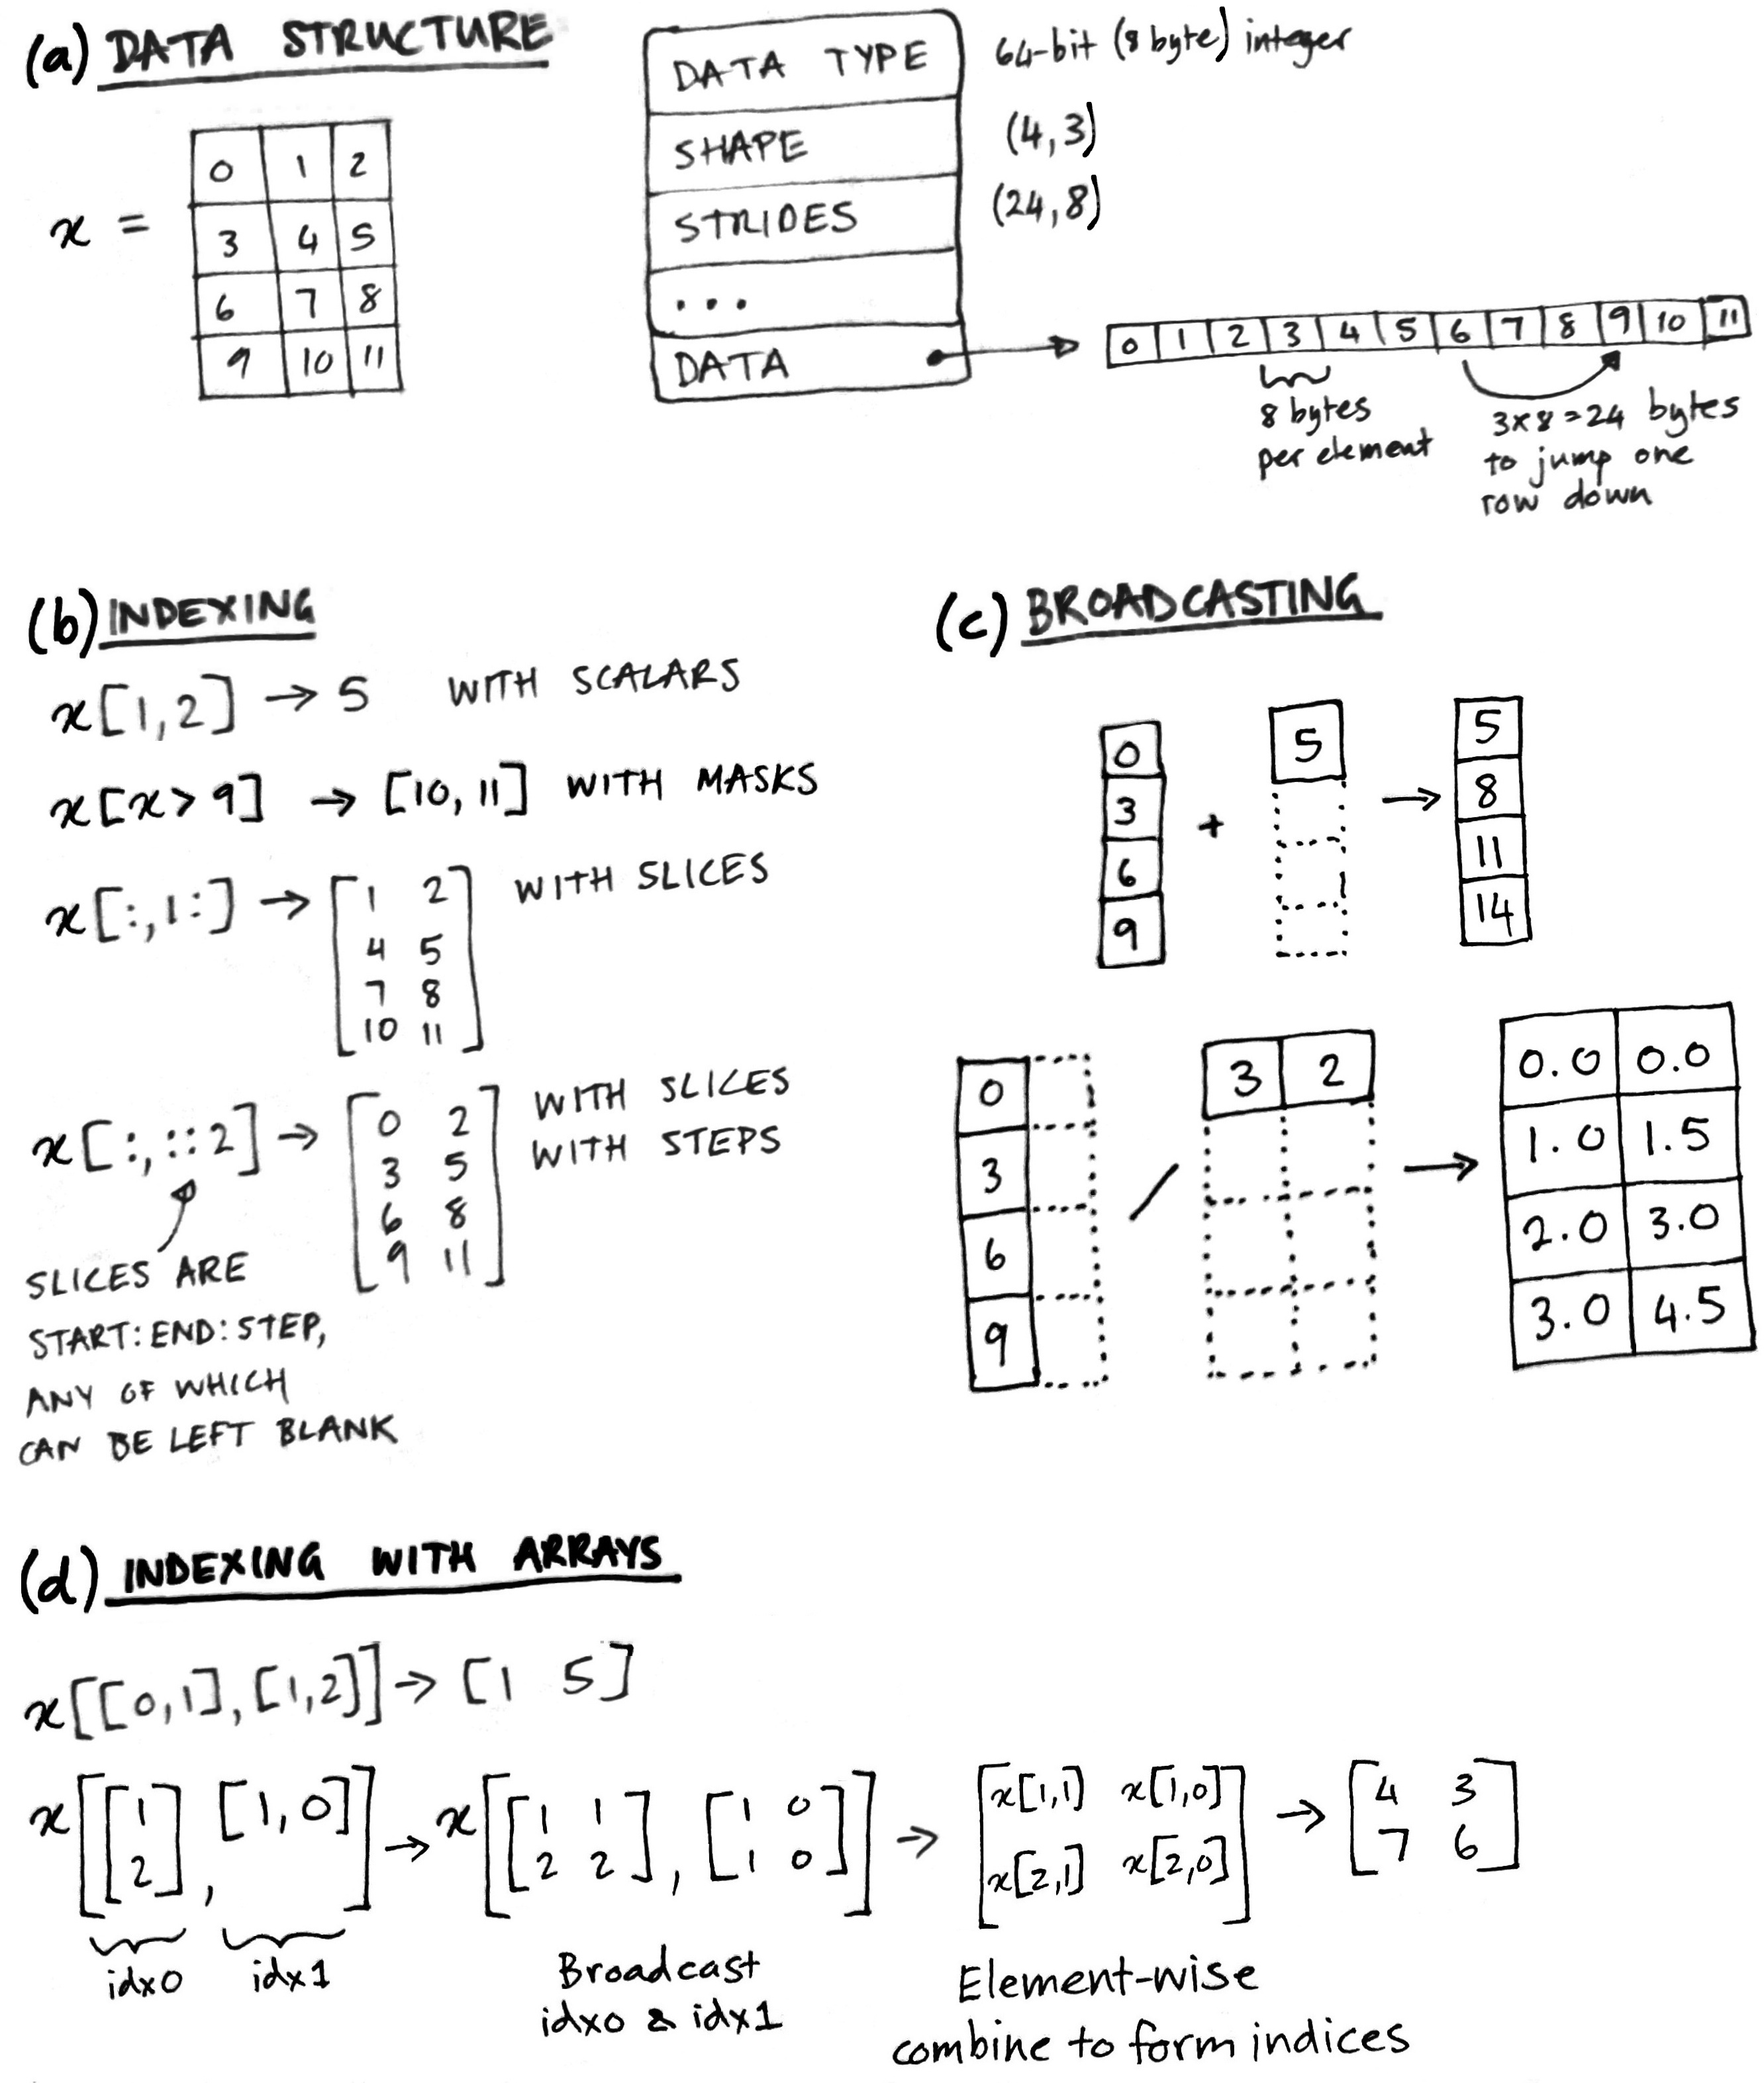 (a) DATA STRUCTURE
x =
0 1 2
3 4 5
6 7 8
9 10 11
DATA TYPE
SHAPE
STRIDES
...
DATA
64-bit (8 byte) integer
(4,3)
(24,8)
0 1 2 3 4 5 6 7 8 9 10 11
8 bytes
per element
3x8=24 bytes
to jump one
row down
(b) INDEXING
x[1,2] → 5 WITH SCALARS
x[x>9] → [10, 11] WITH MASKS
x[:,1:] → [1 2 WITH SLICES
4 5
7 8
10 11]
x[:,::2] → [0 2 WITH SLICES
3 5 WITH STEPS
6 8
9 11]
SLICES ARE
START:END:STEP,
ANY OF WHICH
CAN BE LEFT BLANK
(c) BROADCASTING
0
3
6
9
+
5
→
5
8
11
14
0
3
6
9
/
3 2
→
0.0 0.0
1.0 1.5
2.0 3.0
3.0 4.5
(d) INDEXING WITH ARRAYS
x[[0,1],[1,2]] → [1 5]
x[[1 2], [1,0]] → x[[1 1 2 2], [1 0 1 0]] → [x[1,1] x[1,0] x[2,1] x[2,0]] → [4 3 7 6]
idx0 idx1
Broadcast
idx0 & idx1
Element-wise
combine to form indices